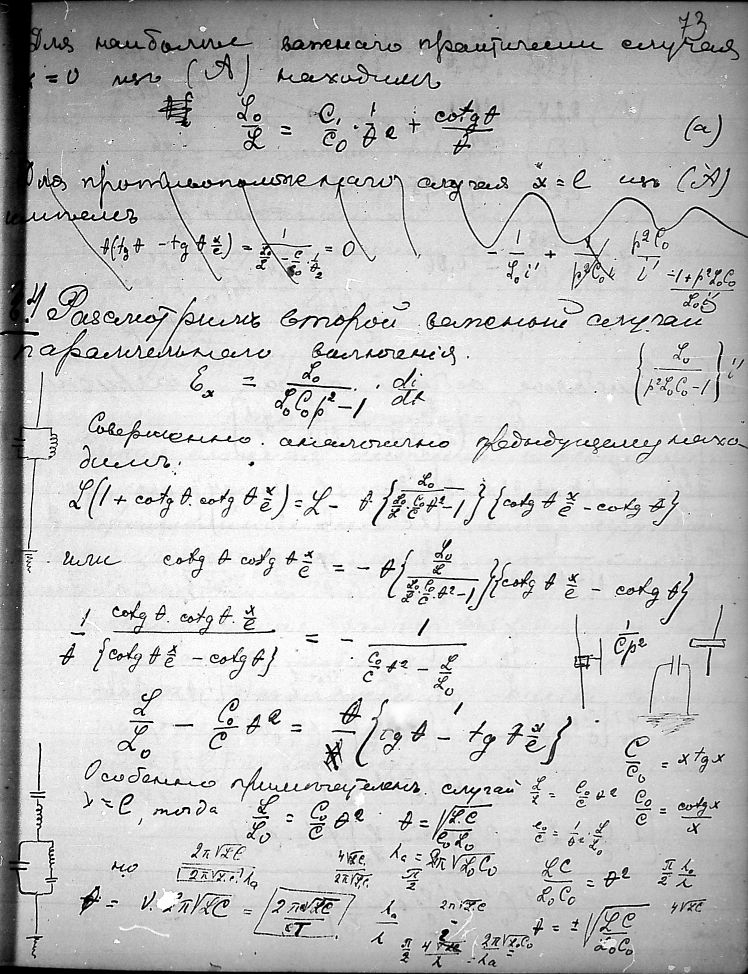 73
Для наиболее важнаго практически случая
x = 0 изъ (A) находимъ
L₀/L = C/C₀ · 1/θ² + cotgθ/θ (a)
Для противоположнаго случая x = l изъ (A)
имѣемъ
θ(tgθ - tgθ x/l) = 1/(L₀/L - C/C₀ · 1/θ²) = 0
- 1/L₀i' + 1/p²C₀ p²C₀/i' -1+p²L₀C₀/L₀i'
Разсмотримъ второй важный случай
параллельнаго включенія. {L₀/(p²L₀C₀-1)} i'
Ɛₓ = L₀/(L₀C₀p²-1) · di/dt
Совершенно аналогично предыдущему нахо-
димъ:
L(1 + cotgθ·cotgθ x/l) = L - θ{L₀/(L₀/L · C₀/C θ²-1)}{cotgθ x/l - cotgθ}
или cotgθ cotgθ x/l = -θ{(L₀/L)/(L₀/L · C₀/C · θ²-1)}{cotgθ x/l - cotgθ}
1/θ · cotgθ·cotgθ·x/l / {cotgθ x/l - cotgθ} = - 1/(C₀/C θ² - L/L₀) 1/Cp²
L/L₀ - C₀/C θ² = θ/1 {tgθ - tgθ x/l}
C/C₀ = x tgx
Особенно примѣчателенъ случай L/L = C₀/C θ² C₀/C = cotgx/x
x = l, тогда L/L₀ = C₀/C θ² θ = √(LC/C₀L₀) C₀/C = 1/θ² · L/L₀
но 2π√LC/2π√L₀C₀ · λₐ 4√LC/2π√LC λₐ = 2π√L₀C₀ π/2 LC/L₀C₀ = θ² π/2 λₐ/λ
θ = ν·2π√LC = 2π√LC/T λₐ/λ 2π√LC θ = ±√(LC/L₀C₀) 4√LC
π/2 4√LC/λ = 2π√L₀C₀/λₐ